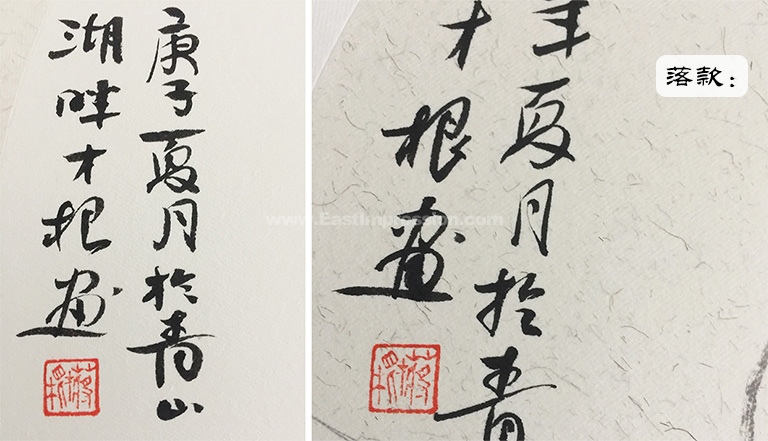 庚子夏月於青山
湖畔才根画
夏月於青
才根画
落款：
www.EastImpression.com